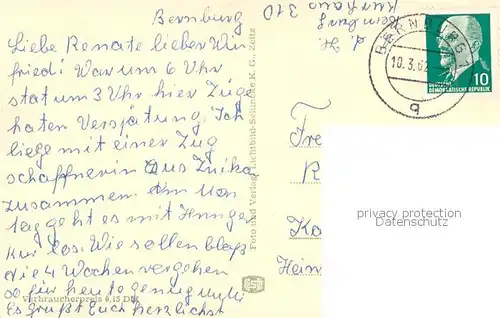 Bernburg
Liebe Renate lieber Win
fried! War um 6 Uhr
stat um 3 Uhr hier Züge
haten Versjätung. Ich
liege mit einer Zug
schaffnerin aus Zwika
zusammen. Am Mon
tag geht es mit Hunger
kur los. Wie sollen bloß
die 4 Wochen vergehen
so für heute genug
Es grüßt Euch herzlichst
Verbraucherpreis 0,15 DM
Foto und Verlag Lichtbild-Schincke K. G., Zeitz
Bernburg
Kurhaus 310
BERNBURG
10.3.62
a
10
DEUTSCHE
DEMOKRATISCHE REPUBLIK
privacy protection
Datenschutz